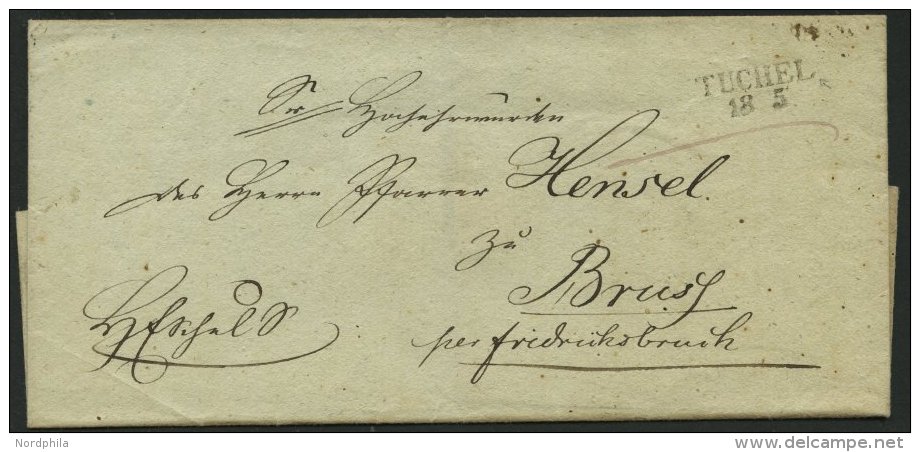 TUCHEL
18 5
Sr Hochehrwürden
des Herrn Pfarrer Hensel.
zu
Brusz
per Fridrichsbruch
Nordphila
delcampe.net